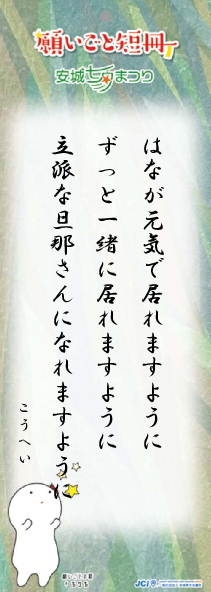 願いごと短冊
安城七夕まつり
はなが元気で居れますように
ずっと一緒に居れますように
立派な旦那さんになれますように
こうへい
JCI